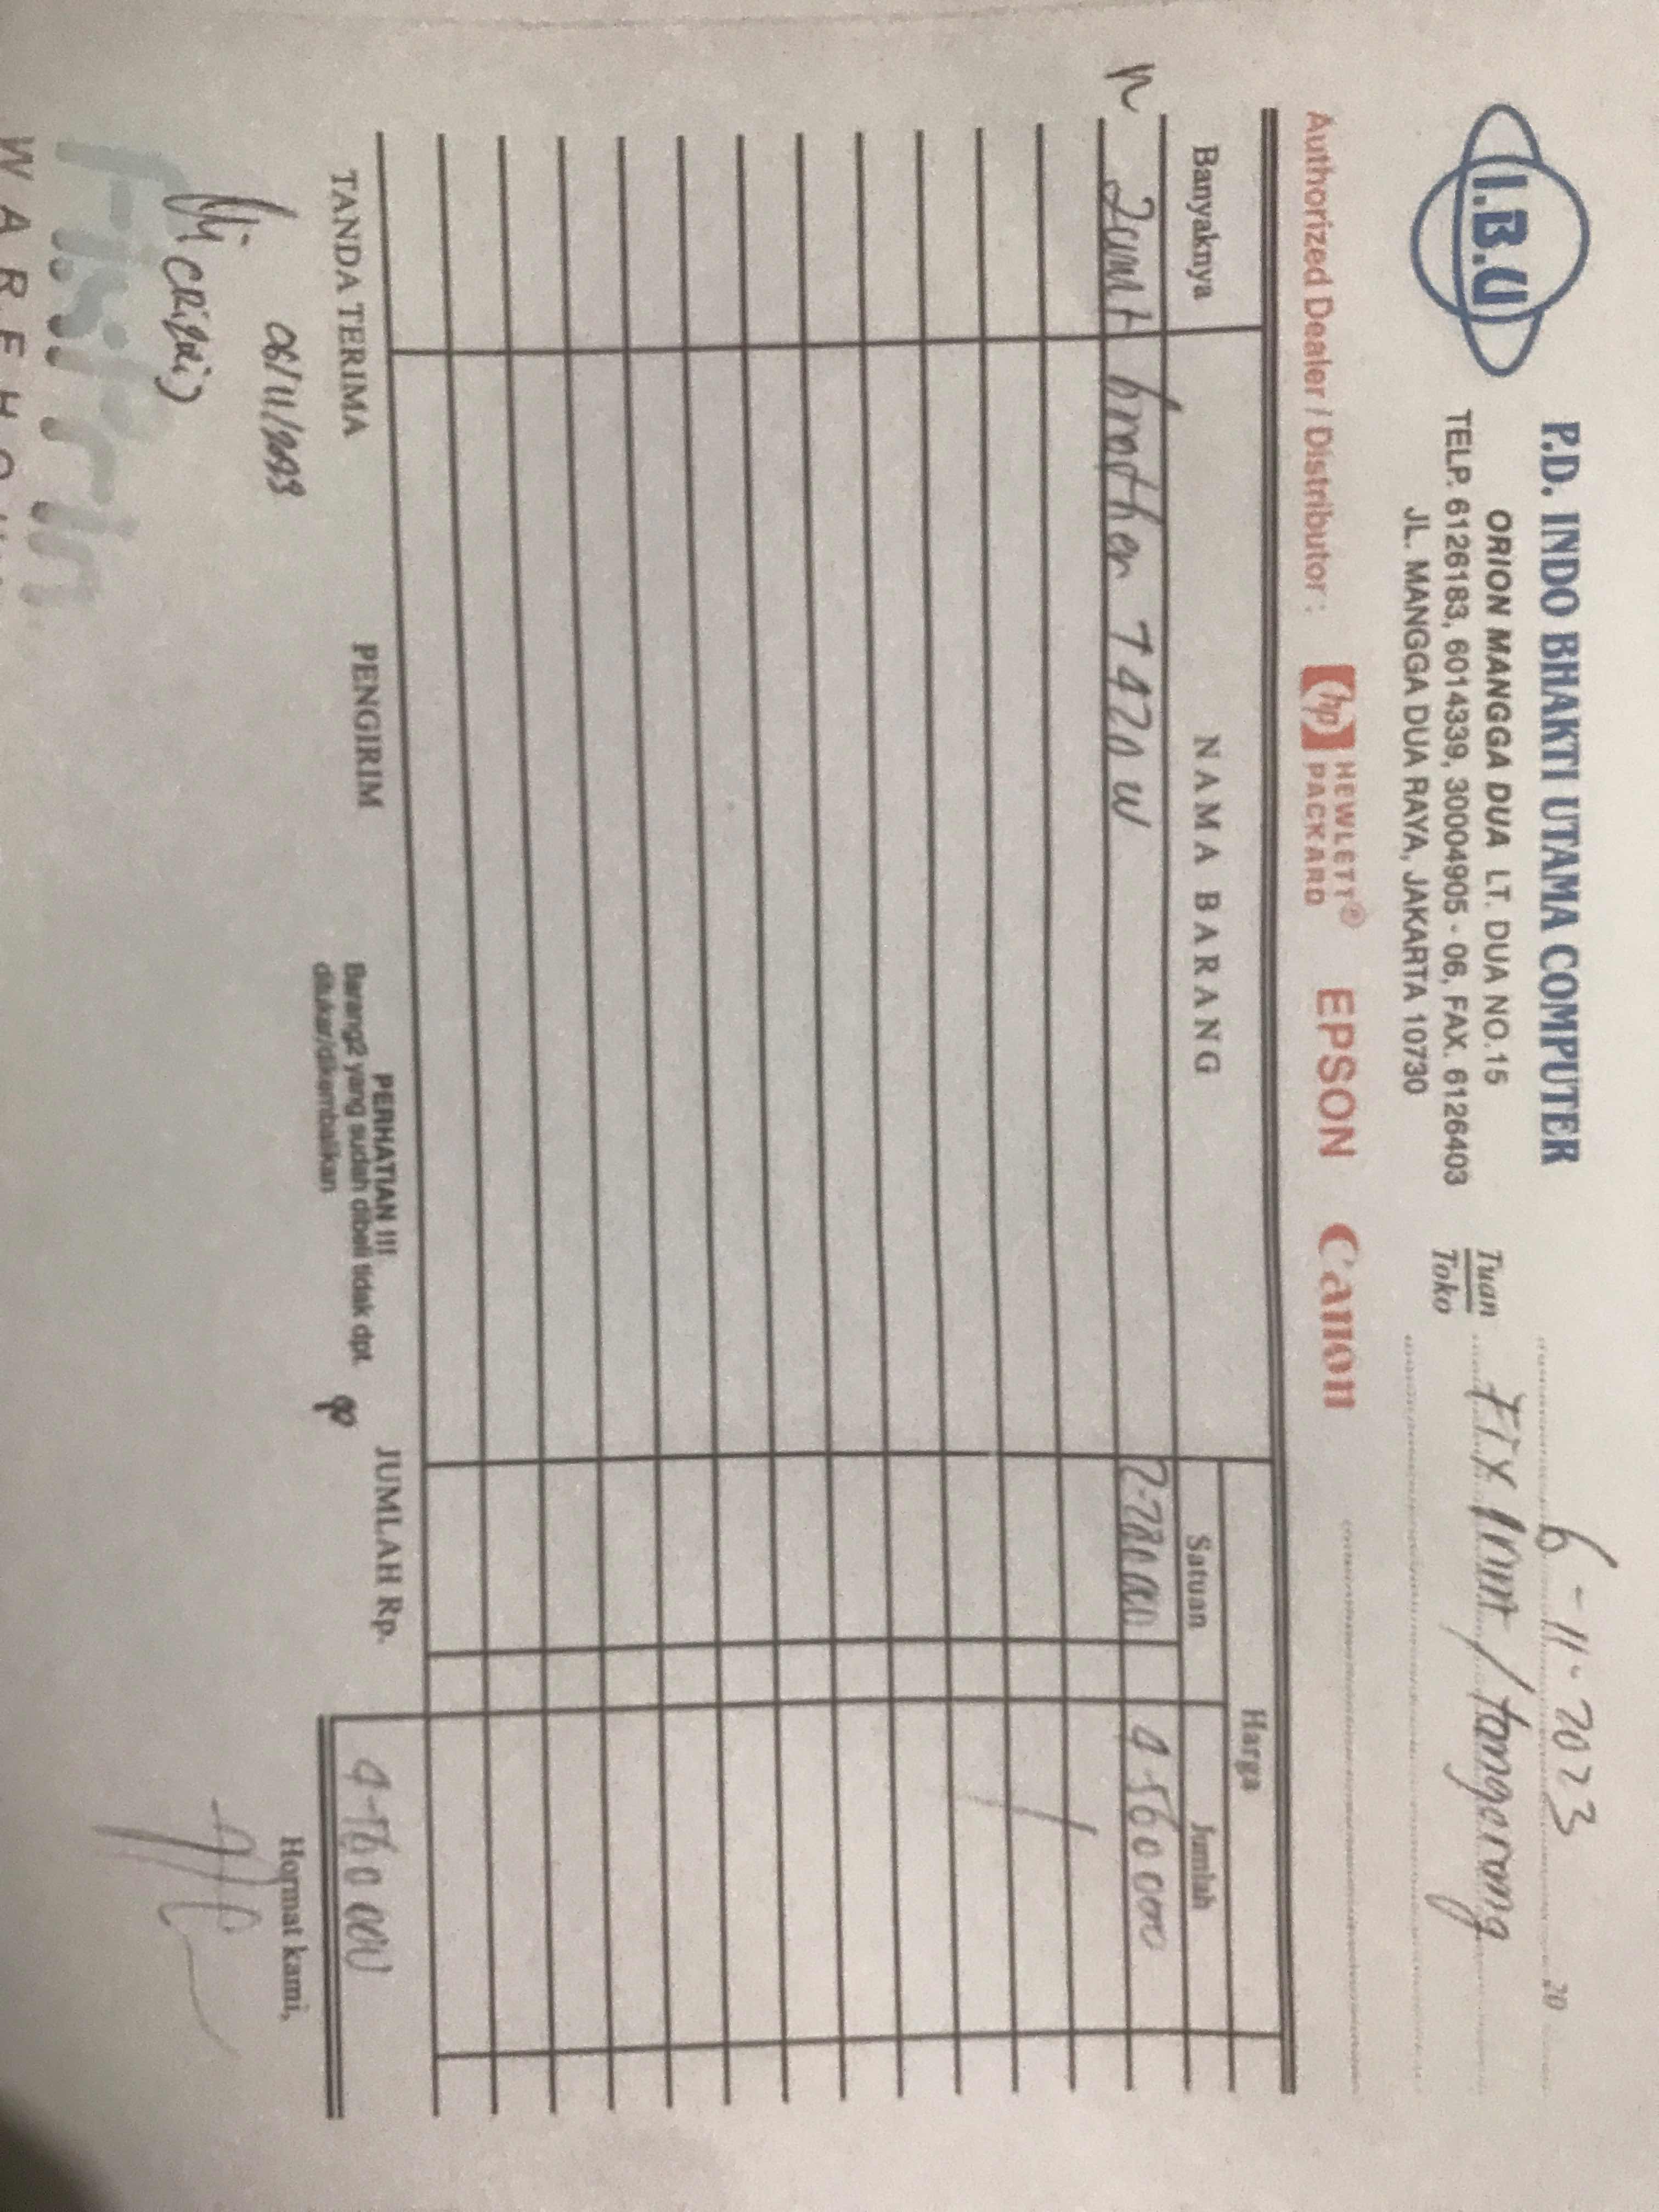 I.B.U
P.D. INDO BHAKTI UTAMA COMPUTER
ORION MANGGA DUA LT. DUA NO.15
TELP. 6126183, 6014339, 30004905 - 06, FAX. 6126403
JL. MANGGA DUA RAYA, JAKARTA 10730
6 - 11 - 2023 20
Tuan
Toko
Fix Print / tangerang
Authorized Dealer / Distributor :
hp HEWLETT® PACKARD
EPSON
Canon
Banyaknya
NAMA BARANG
Harga
Satuan
Jumlah
2 unit brother T420 W 4 560 000
TANDA TERIMA
PENGIRIM
PERHATIAN !!!
Barang2 yang sudah dibeli tidak dpt.
ditukar/dikembalikan
JUMLAH Rp.
4-560 000
06/11/2023
Hormat kami,